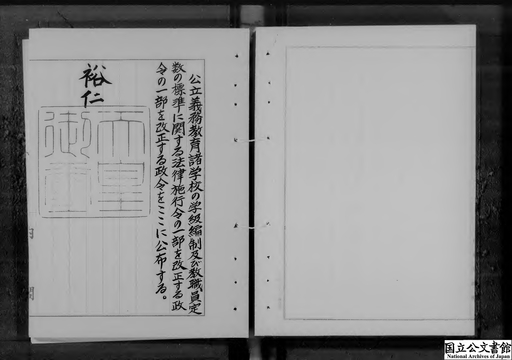 公立義務教育諸学校の学級編制及び教職員定
数の標準に関する法律施行令の一部を改正する政
令の一部を改正する政令をここに公布する。
裕仁
天皇
御璽
国立公文書館
National Archives of Japan